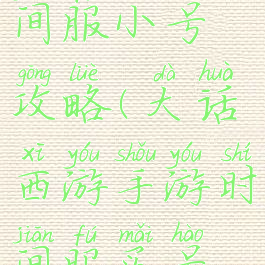 间服小号
gōng lüè dà huà
攻略(大话
xī yóu shǒu yóu shí
西游手游时
jiān fú mǎi hào
间服买号